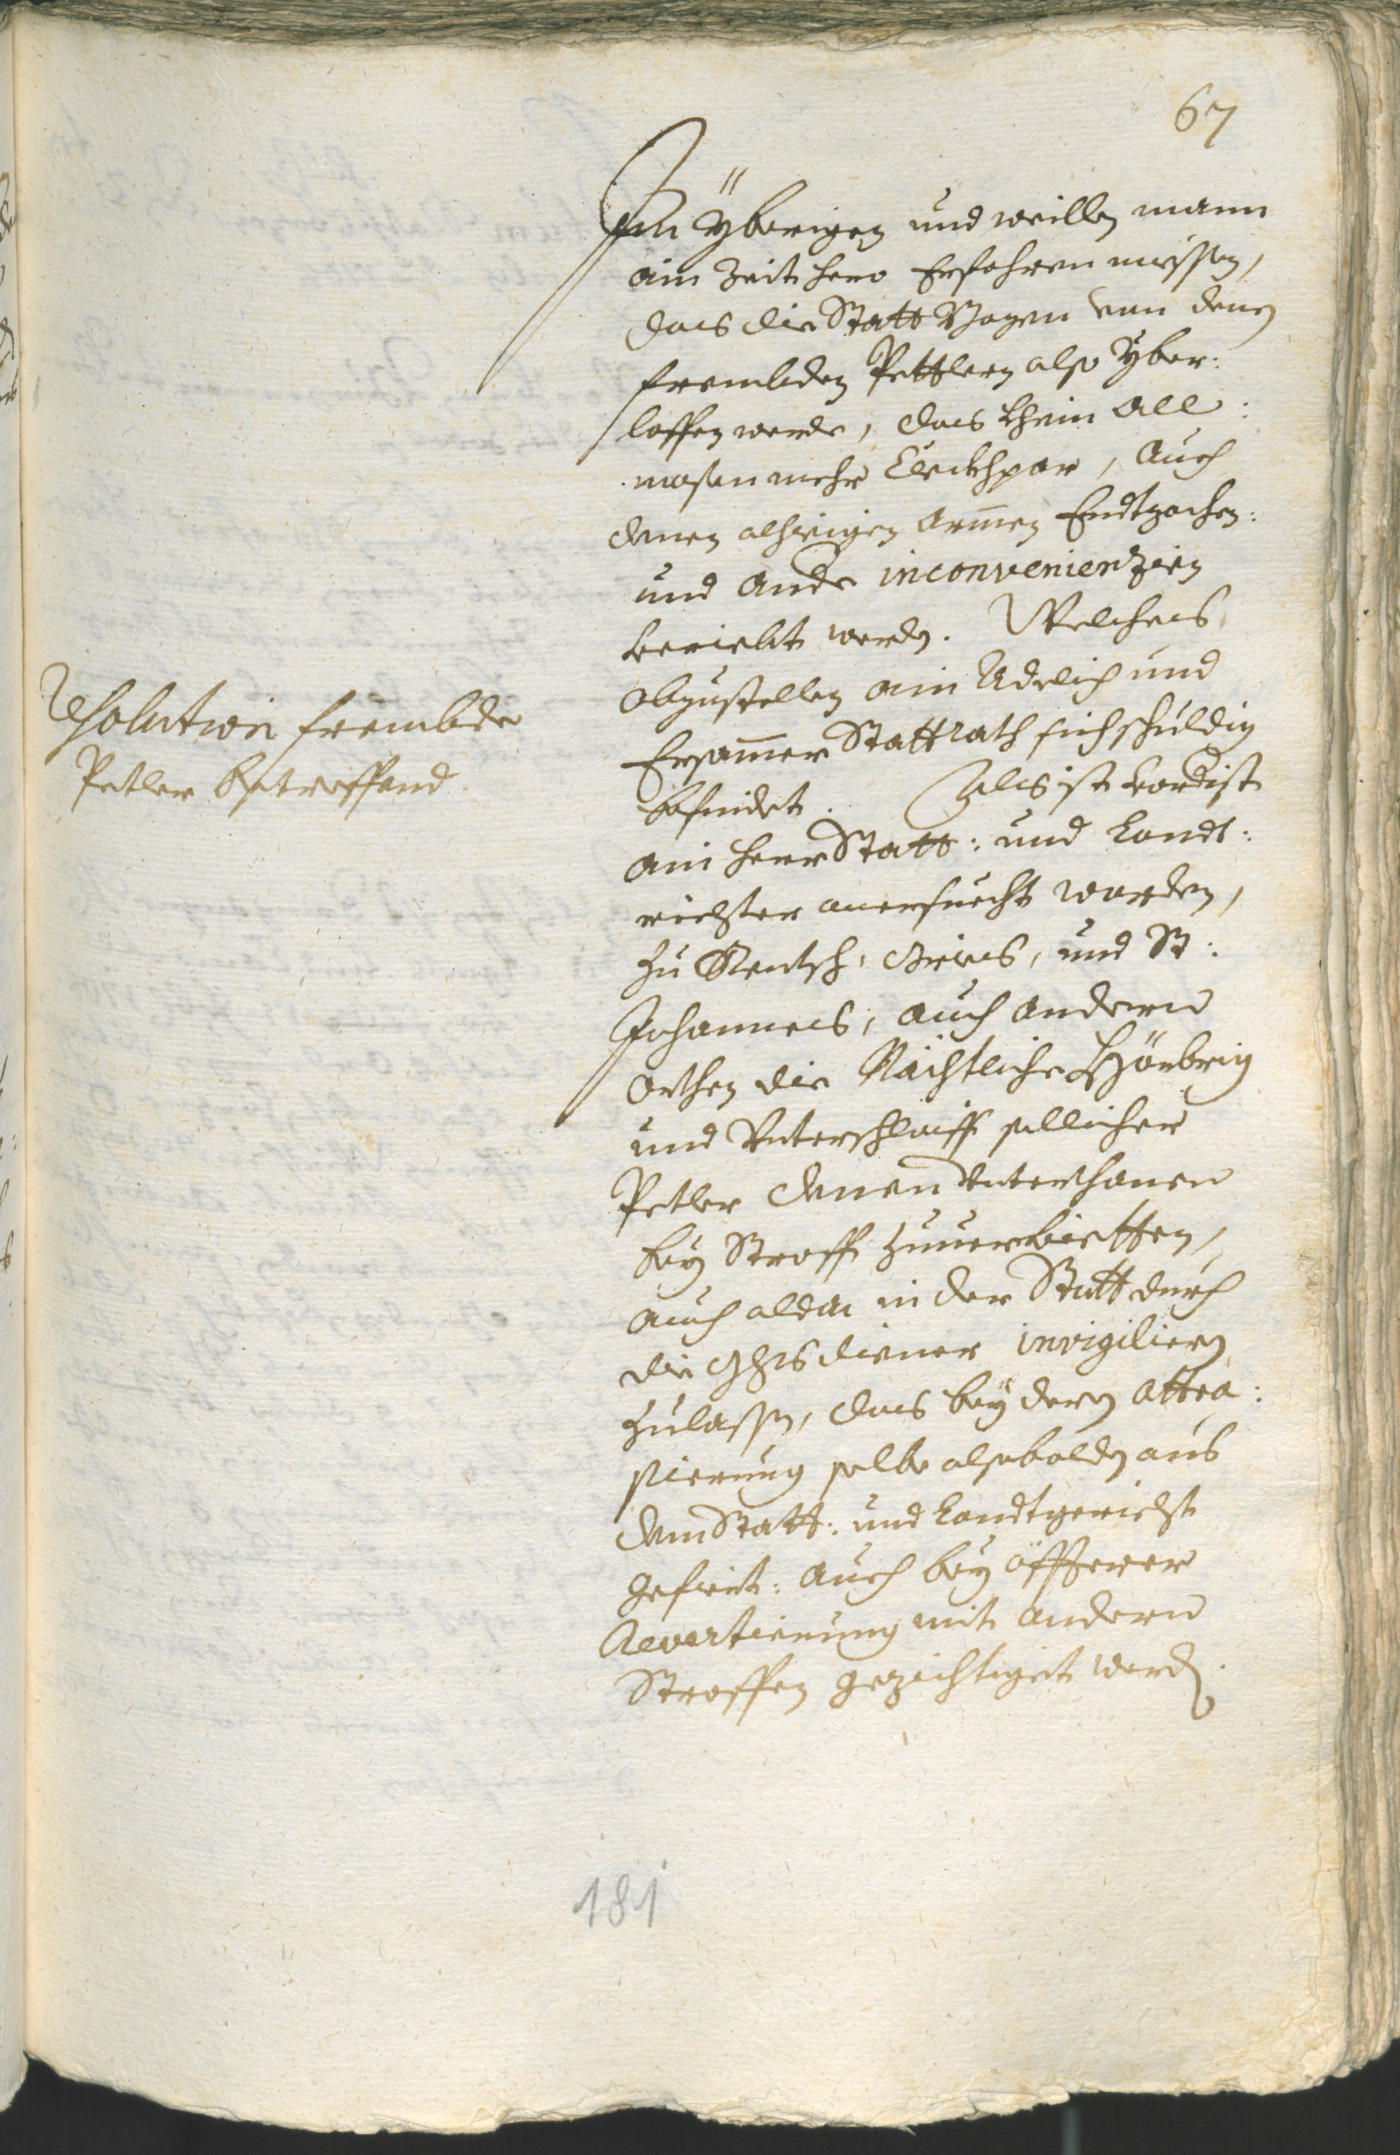 67
Im Yberigen und weillen mann
ain Zeit hero Erfahren müssen,
das die Statt Bozen von denen
frembden Pettlern also Yber:
loffen werde, das khain All:
mosen mehr Erckhlöckhpar, Auch
denen alhieigen Armen Entzochen:
und Ande inconvenienzien
veriebt werden. Welches
abzustellen ain Adelich und
Ersamer Stattrath sich schuldig
befindet. Als ist vordist
ain herr Statt: und Landt:
richter anersuecht worden,
zu Rentsch, Gries, und St:
Johannes, auch andern
orthen die Nächtliche Hörbrig
und Unterschlaiff sollicher
Petler denen Unterthanen
bey Straff zuuerbietten,
auch alda in der Statt durch
die Ghtsdiener invigiliern
zulassen, das bey deren attra:
pierung selbe alsobalden aus
dem Statt: und Landtgericht
gefiert: auch bey öffterer
Revertierung mit andern
Straffen gezichtiget werden.
Resolution frembde
Petler betreffend
181